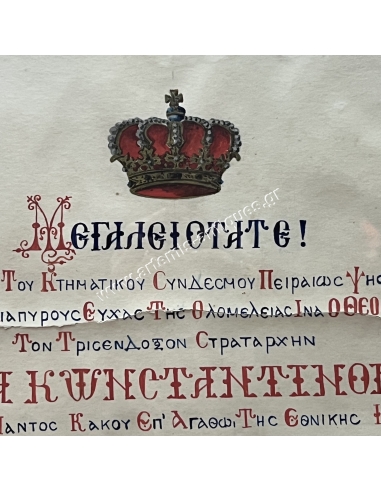 ΜΕΓΑΛΕΙΟΤΑΤΕ!
ΤΟΥ ΚΤΗΜΑΤΙΚΟΥ ΣΥΝΔΕΣΜΟΥ ΠΕΙΡΑΙΩΣ ΨΗ
ΙΑΠΥΡΟΥΣ ΕΥΧΑΣ ΤΗΣ ΟΛΟΜΕΛΕΙΑΣ ΙΝΑ Ο ΘΕΟ
ΤΟΝ ΤΡΙΣΕΝΔΟΞΟΝ ΣΤΡΑΤΑΡΧΗΝ
Α ΚΩΝΣΤΑΝΤΙΝΟ
ΠΑΝΤΟΣ ΚΑΚΟΥ ΕΠ' ΑΓΑΘΩ, ΤΗΣ ΕΘΝΙΚΗΣ